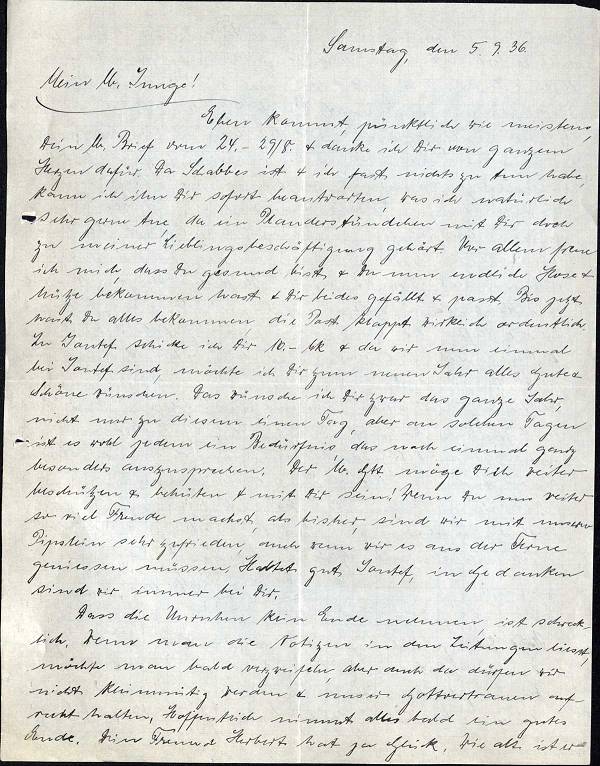 Samstag, den 5.9.36.
Mein lb. Junge!
Eben kommt, pünktlich wie meistens,
Dein lb. Brief vom 24.-29/8. & danke ich Dir von ganzem
Herzen dafür. Da Schabbes ist & ich fast nichts zu tun habe,
kann ich ihn Dir sofort beantworten, was ich natürlich
sehr gerne tue, da ein Plauderstündchen mit Dir doch
zu meiner Lieblingsbeschäftigung gehört. Vor allem freue
ich mich, dass Du gesund bist & Du nun endlich Hose &
Mütze bekommen hast & Dir beides gefällt & passt. Bis jetzt
hast Du alles bekommen die Post klappt wirklich ordentlich.
Zu Jontef schicke ich Dir 10.- & da wir nun einmal
bei Jontef sind, möchte ich Dir zum neuen Jahr alles Gute &
Schöne wünschen. Das wünsche ich Dir zwar das ganze Jahr,
nicht nur zu diesem einen Tag, aber an solchen Tagen
ist es wohl jedem ein Bedürfnis, das noch einmal ganz
besonders auszusprechen. Der lb. Gtt möge Dich weiter
beschützen & behüten & mit Dir sein! Wenn Du uns weiter
so viel Freude machst, als bisher, sind wir mit unserm
sehr zufrieden, auch wenn wir es aus der Ferne
geniessen müssen. Haltet gut Jontef, in Gedanken
sind wir immer bei Dir.
Dass die Unruhen kein Ende nehmen, ist schreck-
lich. Wenn man die Notizen in den Zeitungen liest,
möchte man bald verzweifeln, aber auch da dürfen wir
nicht kleinmütig werden & unser Gottvertrauen auf-
recht halten. Hoffentlich nimmt alles bald ein gutes
Ende. Dein Freund Herbert hat ja Glück. Wie alt ist er